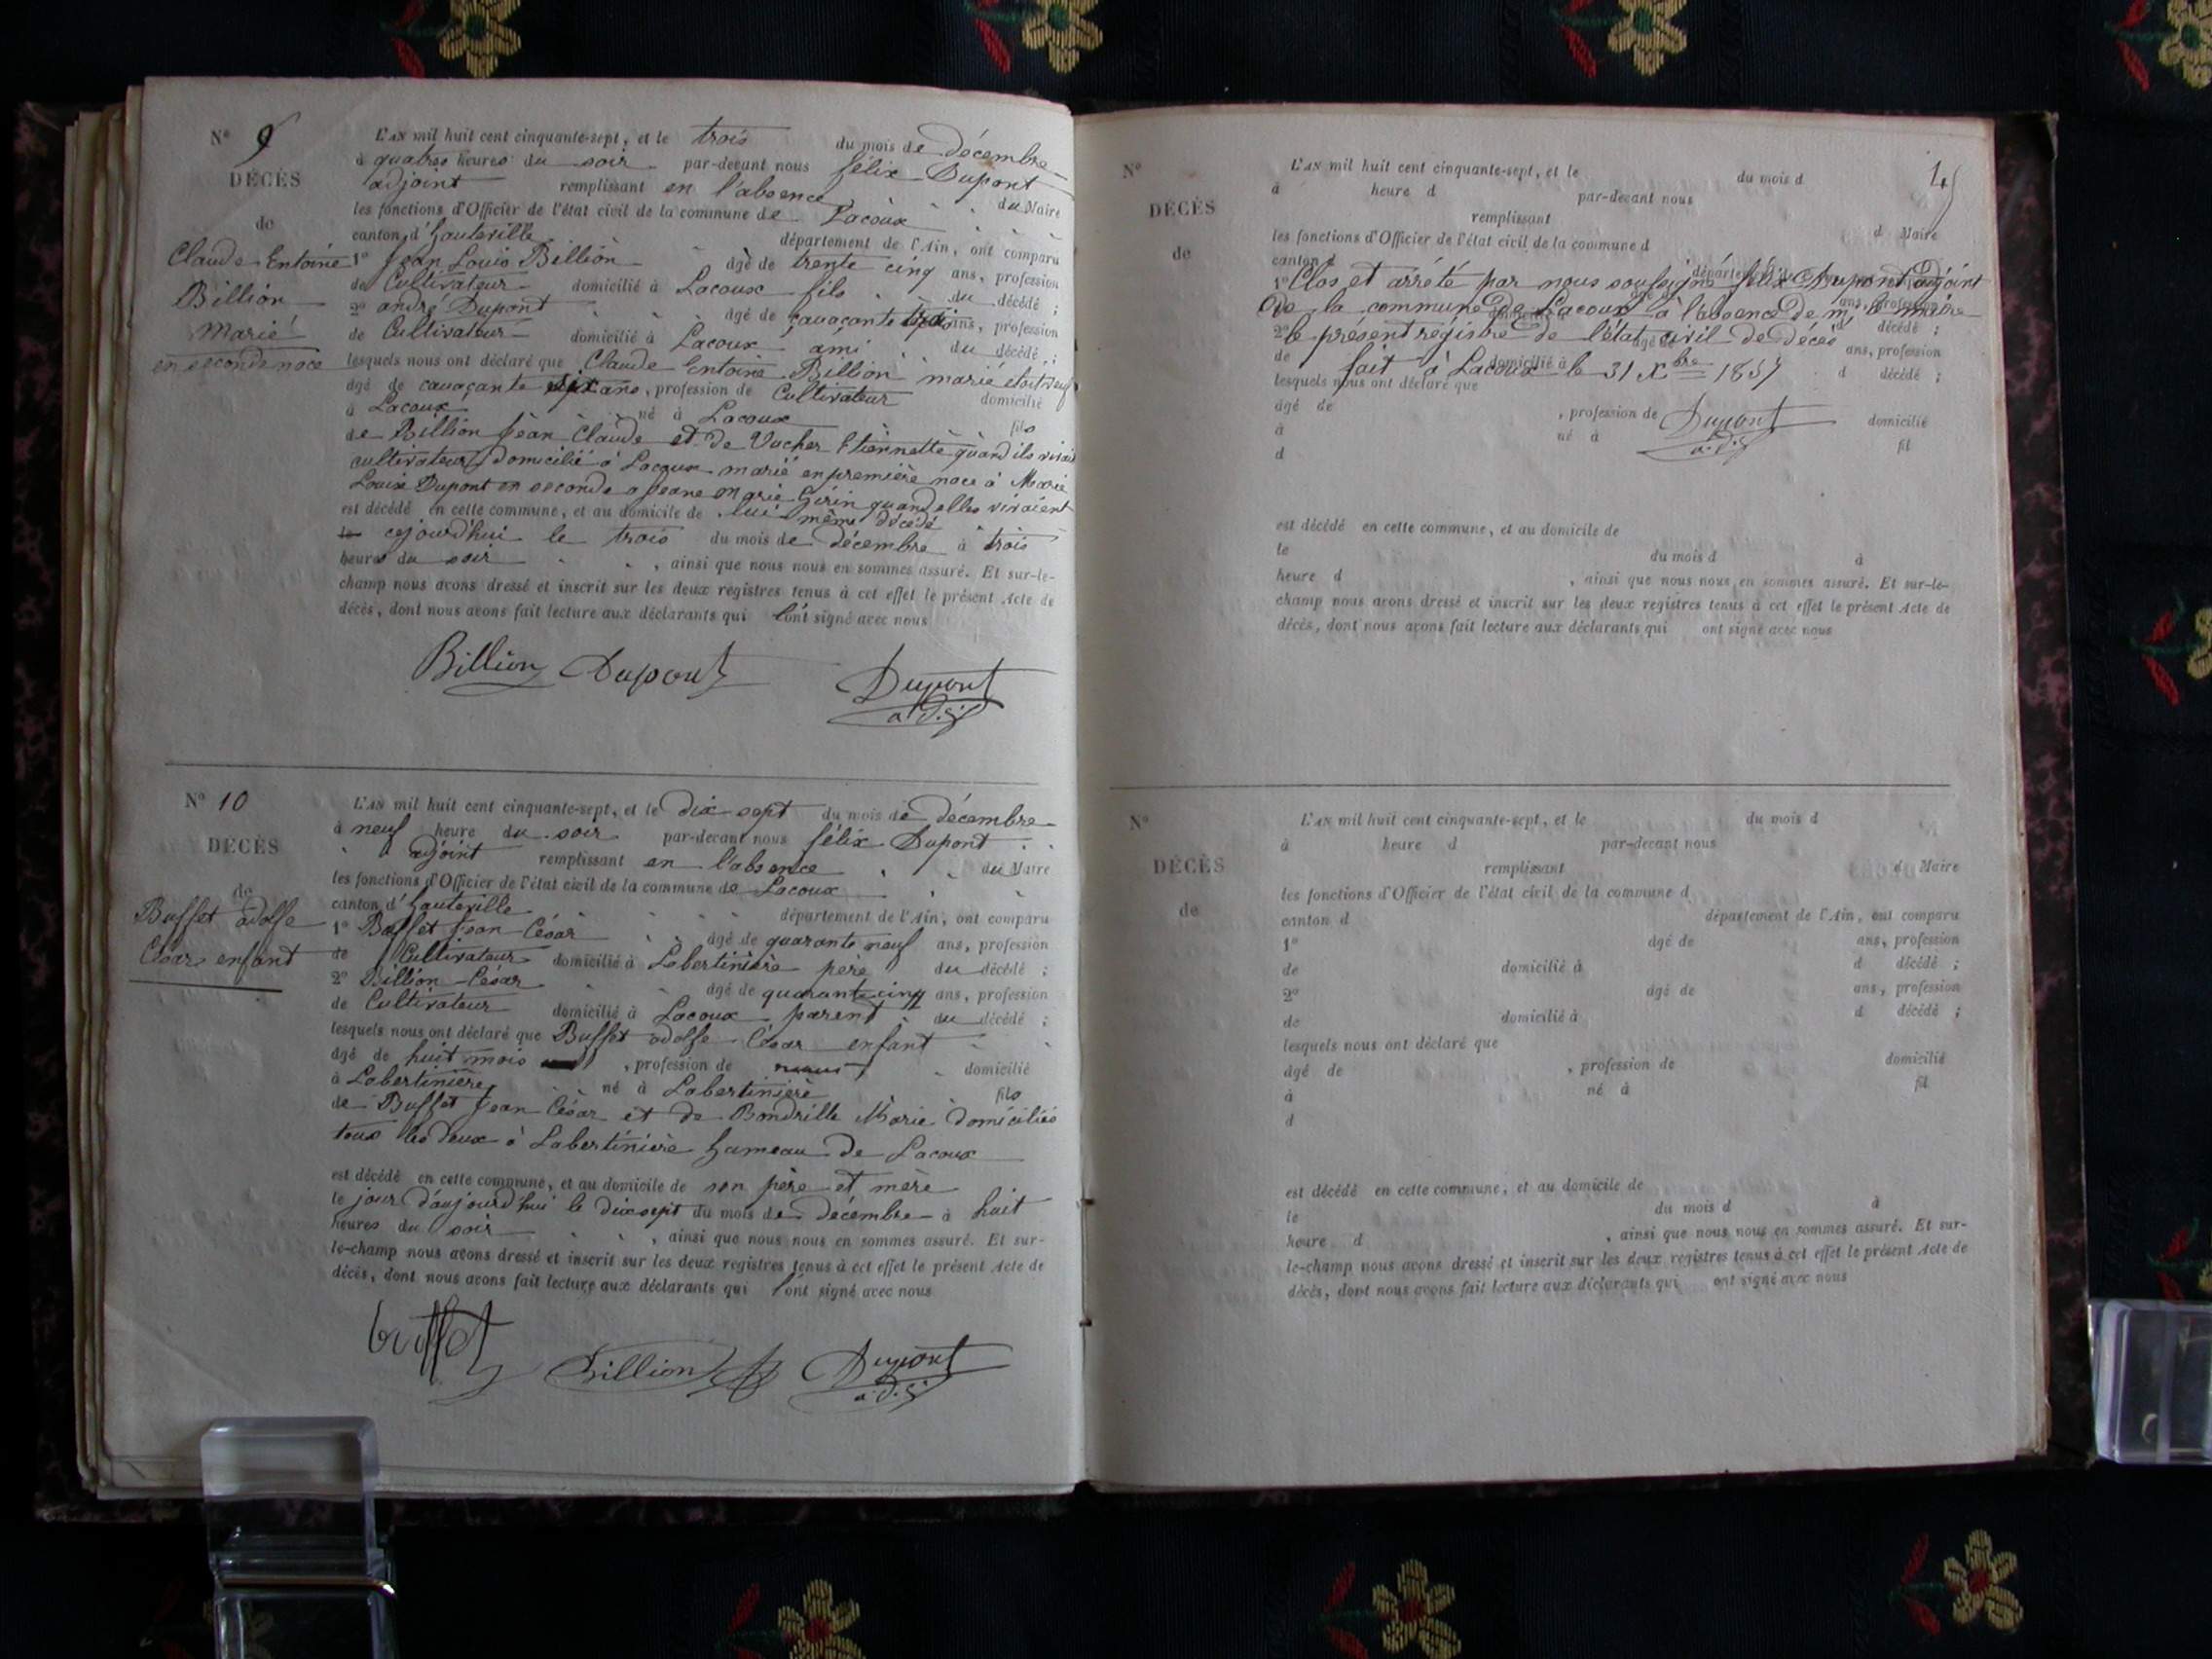 N° 9
DÉCÈS
de
Claude Entoine
Billion
Marié
en seconde noce
L'AN mil huit cent cinquante-sept, et le trois du mois de décembre
à quatres heures du soir par-devant nous félix Dupont
adjoint remplissant en l'absence du Maire
les fonctions d'Officier de l'état civil de la commune de Lacoux
canton d'hauteville département de l'Ain, ont comparu
1° Jean Louis Billion âgé de trente cinq ans, profession
de Cultivateur domicilié à Lacoux fils du décédé ;
2° andré Dupont âgé de ans, profession
de Cultivateur domicilié à Lacoux ami du décédé ;
lesquels nous ont déclaré que Claude Entoine Billion marié
âgé de ans, profession de Cultivateur domicilié
à Lacoux né à Lacoux fils
de Billion Jean Claude et de Vacher Etiennette quand ils vivait
cultivateur domicilié à Lacoux marié en première noce à Marie
Louise Dupont en seconde a Jeane Marie Girin quand elles vivaient
est décédé en cette commune, et au domicile de lui même décédé
cejourd'hui le trois du mois de décembre à trois
heures du soir , ainsi que nous nous en sommes assuré. Et sur-le-
champ nous avons dressé et inscrit sur les deux registres tenus à cet effet le présent Acte de
décès, dont nous avons fait lecture aux déclarants qui l'ont signé avec nous
Billion Dupont Dupont
adj
N° 10
DÉCÈS
de
Buffet adolfe
César enfant
L'AN mil huit cent cinquante-sept, et le dix sept du mois de décembre
à neuf heure du soir par-devant nous félix Dupont
adjoint remplissant en l'absence du Maire
les fonctions d'Officier de l'état civil de la commune de Lacoux
canton d'hauteville département de l'Ain, ont comparu
1° Buffet Jean César âgé de quarante neuf ans, profession
de Cultivateur domicilié à Labertinière père du décédé ;
2° Billion César âgé de quarante cinq ans, profession
de Cultivateur domicilié à Lacoux parent du décédé ;
lesquels nous ont déclaré que Buffet adolfe César enfant
âgé de huit mois , profession de domicilié
à Labertinière né à Labertinière fils
de Buffet Jean César et de Bondrille Marie domiciliés
tous les deux à Labertinière hameau de Lacoux
est décédé en cette commune, et au domicile de son père et mère
le jour d'aujourd'hui le dix sept du mois de décembre à huit
heures du soir , ainsi que nous nous en sommes assuré. Et sur-
le-champ nous avons dressé et inscrit sur les deux registres tenus à cet effet le présent Acte de
décès, dont nous avons fait lecture aux déclarants qui l'ont signé avec nous
buffet Billion Dupont
adj
N°
DÉCÈS
de
L'AN mil huit cent cinquante-sept, et le du mois d
à heure d par-devant nous
remplissant
les fonctions d'Officier de l'état civil de la commune d d Maire
canton d département
1° Clos et arrété par nous soussigné félix Dupont adjoint
de la commune de Lacoux a l'absence de mr le maire
2° le présent régistre de l'état civil de décés décédé ;
de fait à Lacoux le 31 Xbre 1857 domicilié à ans, profession
lesquels nous ont déclaré que d décédé ;
âgé de , profession de domicilié
Dupont
adj
à né à fil
d
est décédé en cette commune, et au domicile de
le du mois d à
heure d , ainsi que nous nous en sommes assuré. Et sur-le-
champ nous avons dressé et inscrit sur les deux registres tenus à cet effet le présent Acte de
décès, dont nous avons fait lecture aux déclarants qui ont signé avec nous
N°
DÉCÈS
de
L'AN mil huit cent cinquante-sept, et le du mois d
à heure d par-devant nous
remplissant d Maire
les fonctions d'Officier de l'état civil de la commune d
canton d département de l'Ain, ont comparu
1° âgé de ans, profession
de domicilié à d décédé ;
2° âgé de ans, profession
de domicilié à d décédé ;
lesquels nous ont déclaré que
âgé de , profession de domicilié
à né à fil
d
est décédé en cette commune, et au domicile de
le du mois d à
heure d , ainsi que nous nous en sommes assuré. Et sur-
le-champ nous avons dressé et inscrit sur les deux registres tenus à cet effet le présent Acte de
décès, dont nous avons fait lecture aux déclarants qui ont signé avec nous